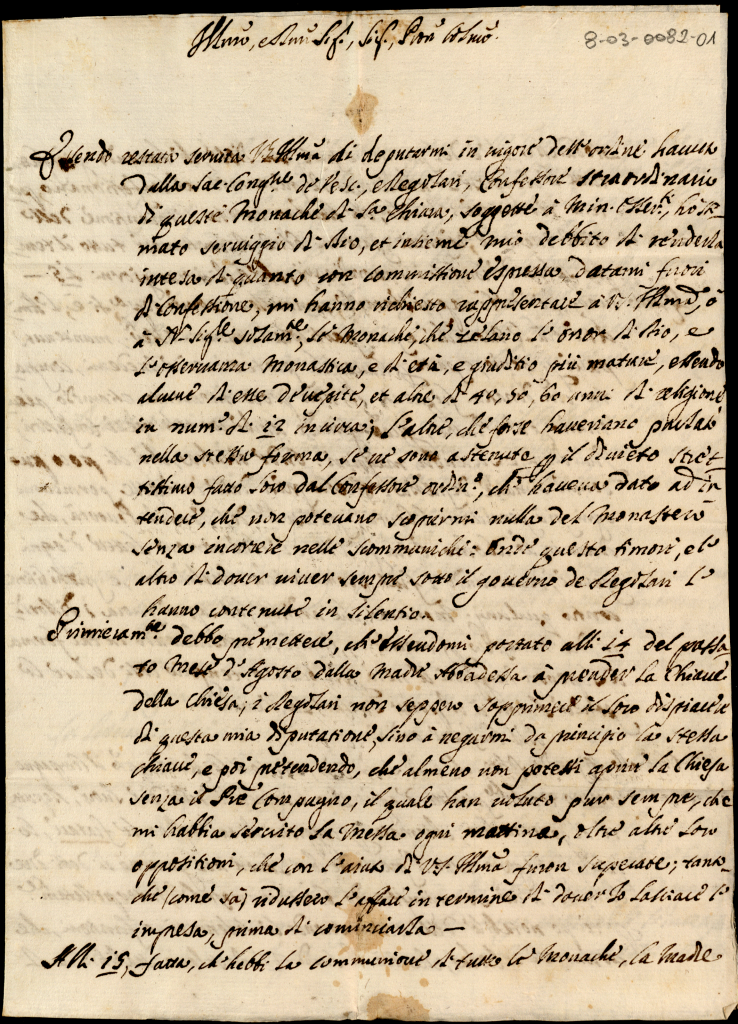 Illmo, e Rmo Sigr, Sigr, Pron Colmo
8-03-0082-01
Essendo restata servita VS Illma di deputarmi in vigore dell'ordine havuta
dalla Sac. Congne de Vesc., e Regolari, Confessore straordinario
di queste Monache di Sa Chiara, soggette à Min. Osserti, hò sti-
mato servizio di Dio, et insieme mio debbito di renderla
intesa di quanto con commissione espressa, datami fuori
di Confessione, mi hanno richiesto rappresentare à VS. Illma, ò
à N. Sigre solamte, le Monache, che zelano l'onor di Dio, e
l'osservanza Monastica, e di età, e giuditio più mature, essendo
alcune di esse decrepite, et altre di 40, 50, 60 anni di religione
in numo di 12 incirca; l'altre, che forse haveriano parlato
nella stessa forma, se ne sono astenute p il divieto stret-
tissimo fatto loro dal Confessore ordino, che haveva dato ad in-
tendere, che non potevano scoprirmi nulla del Monastero
senza incorrere nelle scommuniche: onde questo timore, e l'
altro di dover viver sempre sotto il governo de Regolari l'
hanno contenute in silentio.
Primieramte debbo premettere, che essendomi portato alli 14 del passa-
to Mese d'Agosto dalla Madre Abbadessa à prender la Chiave
della Chiesa, i Regolari non seppero sopprimere il loro dispiacere
di questa mia deputatione, sino à negarmi da principio la stessa
chiave, e poi pretendendo, che almeno non potessi aprire la Chiesa
senza il Pre Compagno, il quale han voluto pur sempre, che
mi habbia servito la Messa ogni mattina, oltre altre loro
oppositioni, che con l'aiuto di VS. Illma furon superate; tanto
che (come sà) ridussero l'affare in termine di dover Io lasciare l'
impresa, prima di cominciarla —
Alli 15, fatta, ch'hebbi la communione di tutte le Monache, la Madre